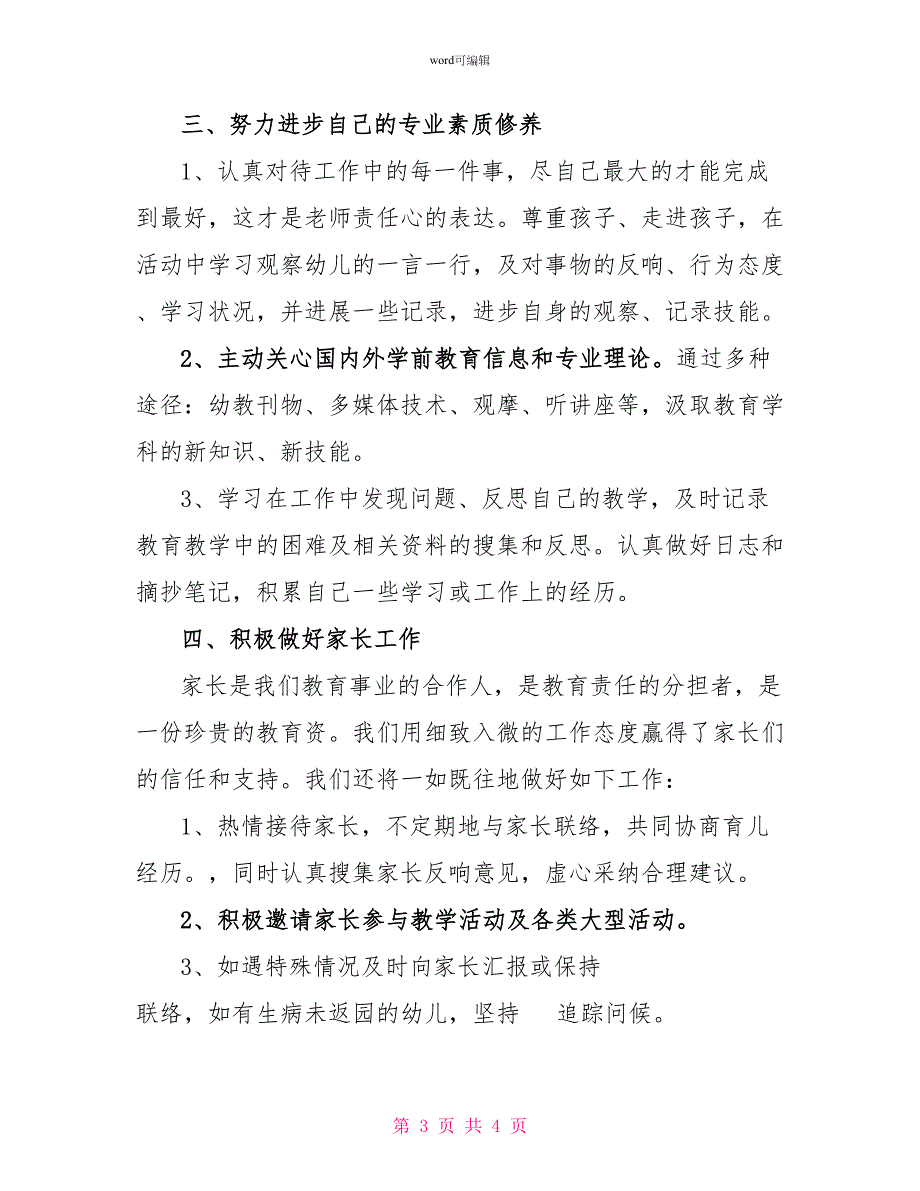 word可编辑
三、努力进步自己的专业素质修养
1、认真对待工作中的每一件事，尽自己最大的才能完成
到最好，这才是老师责任心的表达。尊重孩子、走进孩子，在
活动中学习观察幼儿的一言一行，及对事物的反响、行为态度
、学习状况，并进展一些记录，进步自身的观察、记录技能。
2、主动关心国内外学前教育信息和专业理论。通过多种
途径：幼教刊物、多媒体技术、观摩、听讲座等，汲取教育学
科的新知识、新技能。
3、学习在工作中发现问题、反思自己的教学，及时记录
教育教学中的困难及相关资料的搜集和反思。认真做好日志和
摘抄笔记，积累自己一些学习或工作上的经历。
四、积极做好家长工作
家长是我们教育事业的合作人，是教育责任的分担者，是
一份珍贵的教育资。我们用细致入微的工作态度赢得了家长们
的信任和支持。我们还将一如既往地做好如下工作：
1、热情接待家长，不定期地与家长联络，共同协商育儿
经历。，同时认真搜集家长反响意见，虚心采纳合理建议。
2、积极邀请家长参与教学活动及各类大型活动。
3、如遇特殊情况及时向家长汇报或保持
联络，如有生病未返园的幼儿，坚持 追踪问候。
第 3 页 共 4 页